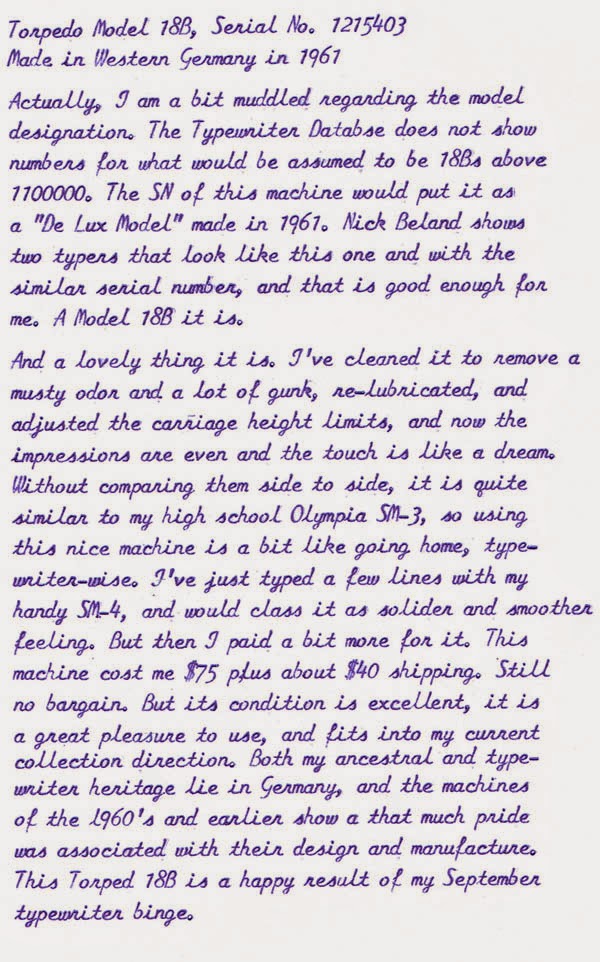 Torpedo Model 18B, Serial No. 1215403
Made in Western Germany in 1961
Actually, I am a bit muddled regarding the model
designation. The Typewriter Databse does not show
numbers for what would be assumed to be 18Bs above
1100000. The SN of this machine would put it as
a "De Lux Model" made in 1961. Nick Beland shows
two typers that look like this one and with the
similar serial number, and that is good enough for
me. A Model 18B it is.
And a lovely thing it is. I've cleaned it to remove a
musty odor and a lot of gunk, re-lubricated, and
adjusted the carriage height limits, and now the
impressions are even and the touch is like a dream.
Without comparing them side to side, it is quite
similar to my high school Olympia SM-3, so using
this nice machine is a bit like going home, type-
writer-wise. I've just typed a few lines with my
handy SM-4, and would class it as solider and smoother
feeling. But then I paid a bit more for it. This
machine cost me $75 plus about $40 shipping. Still
no bargain. But its condition is excellent, it is
a great pleasure to use, and fits into my current
collection direction. Both my ancestral and type-
writer heritage lie in Germany, and the machines
of the 1960's and earlier show a that much pride
was associated with their design and manufacture.
This Torped 18B is a happy result of my September
typewriter binge.